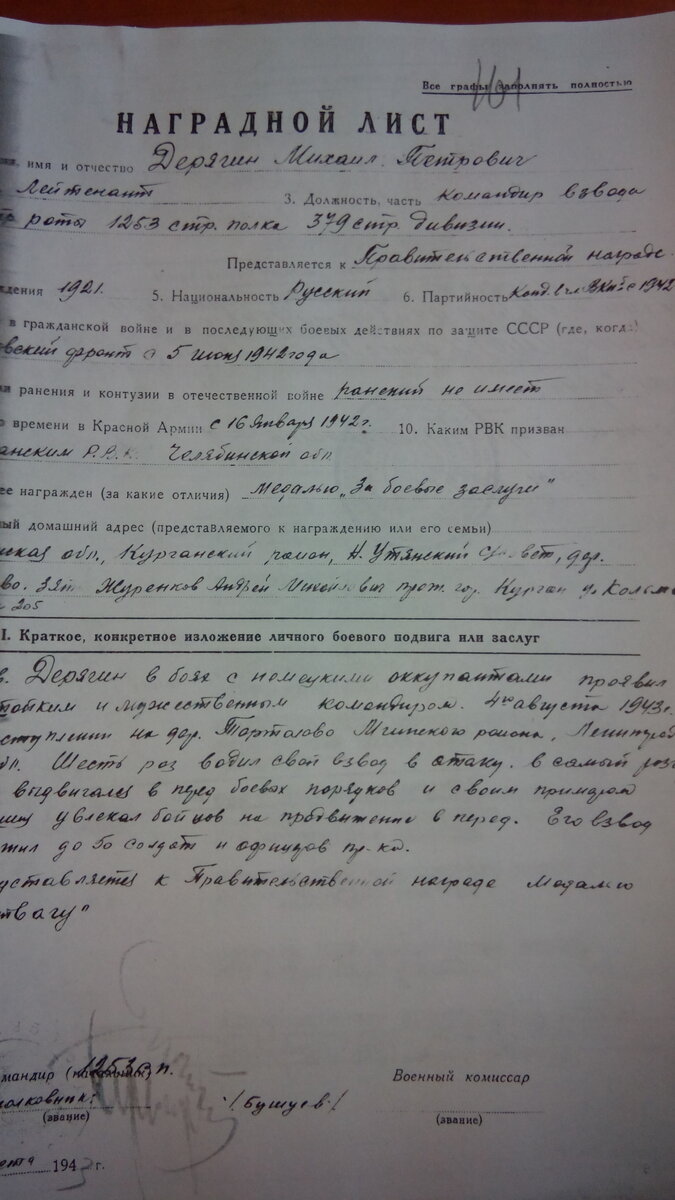 Все графы заполнять полностью
НАГРАДНОЙ ЛИСТ
имя и отчество Дерягин Михаил Петрович
Лейтенант 3. Должность, часть командир взвода
роты 1253 стр. полка 379 стр. дивизии.
Представляется к Правительственной награде
ждения 1921. 5. Национальность Русский 6. Партийность Канд. с 1942
в гражданской войне и в последующих боевых действиях по защите СССР (где, когда)
вский фронт с 5 июня 1942 года
ранения и контузии в отечественной войне ранений не имеет
времени в Красной Армии с 16 Января 1942 г. 10. Каким РВК призван
анским Р.В.К. Челябинской обл
ее награжден (за какие отличия) медалью „За боевые заслуги"
ный домашний адрес (представляемого к награждению или его семьи)
ская обл., Курганский район, Н. Утянский С/совет, дер.
во. Зять Журенков Андрей Михайлович прож. гор. Курган
205
I. Краткое, конкретное изложение личного боевого подвига или заслуг
в. Дерягин в боях с немецкими оккупантами проявил
стойким и мужественным командиром. 4го августа 1943 г.
ступлении на дер. Порталово Мгинского района, Ленинград
Шесть раз водил свой взвод в атаку. в самый раз
выдвигался в перед боевых порядков и своим примером
увлекал бойцов на продвижение в перед. Его взвод
жил до 50 солдат и офицеров пр-ка.
дставляется к Правительственной награде медалью
твагу"
мандир (начальник) 1253 с.п.
олковник: /Бушуев/ Военный комиссар
(звание) (звание)
1943 г.